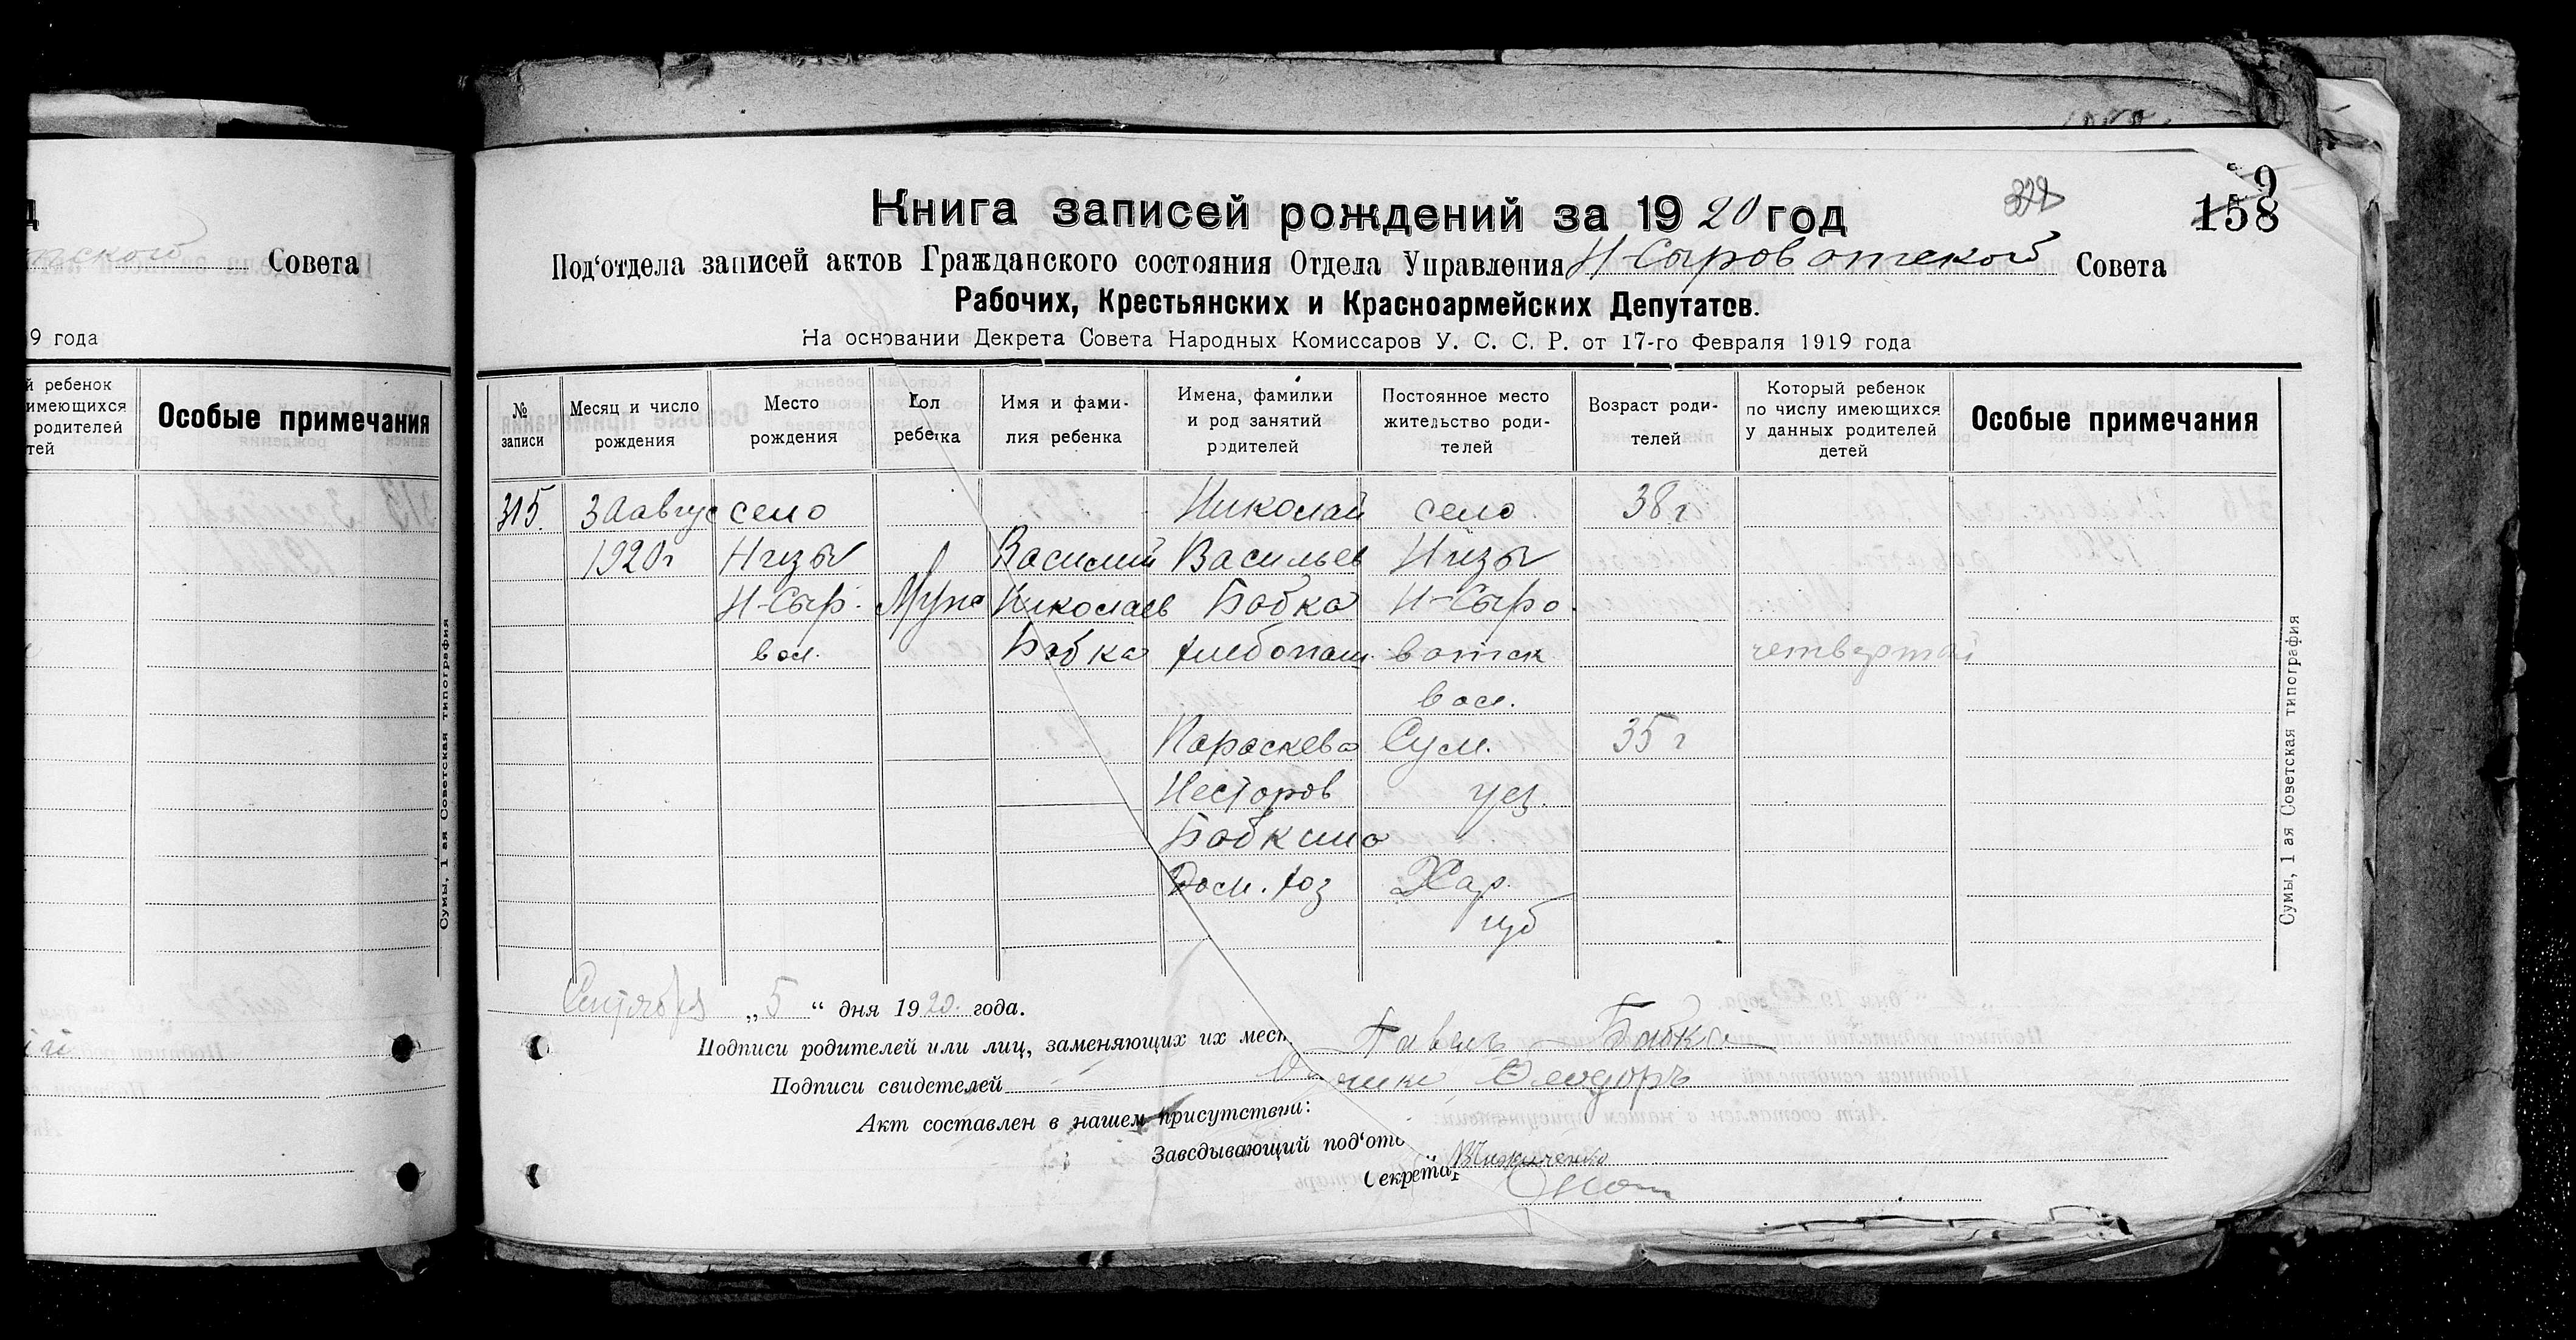 д
Совета
9 года
й ребенок
имеющихся
родителей
тей
Особые примечания
Сумы, 1 ая Советская типография
9
158
Книга записей рождений за 1920 год
Под'отдела записей актов Гражданского состояния Отдела Управления Н-Сыроватской Совета
Рабочих, Крестьянских и Красноармейских Депутатов.
На основании Декрета Совета Народных Комиссаров У. С. С. Р. от 17-го Февраля 1919 года
№ записи
Месяц и число рождения
Место рождения
Пол ребенка
Имя и фами-лия ребенка
Имена, фамилии и род занятий родителей
Постоянное место жительство роди-телей
Возраст роди-телей
Который ребенок по числу имеющихся у данных родителей детей
Особые примечания
315. 30 авгус село Николай село 38 г
1920 г Низы Василий Васильев Низы
Н-Сыр. Муж Николаев Бабка Н-Сыро
вол. Бабка хлебопаш. ватск четвертый
вол.
Параскева Сум. 35 г
Несторов уез.
Бабкина
Дом. хоз Хар.
губ
Сентября „5“ дня 1920 года.
Подписи родителей или лиц, заменяющих их мест Павелъ Бабка
Подписи свидетелей Ѳеодоръ
Акт составлен в нашем присутствии:
Заведывающий под'отд
Секретар
Сумы, 1 ая Советская типография